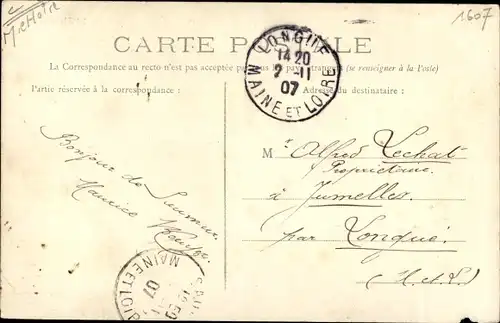 1607
CARTE POSTALE
La Correspondance au recto n'est pas acceptée par tous les pays étrangers (se renseigner à la Poste)
Partie réservée à la correspondance :
Adresse du destinataire :
LONGUÉ
14 20
2 -11
07
MAINE ET LOIRE
Bonjour de Saumur
Maurice
M. Alfred Lechat
Propriétaire
à Jumelles
par Longué.
(M. et L.)
MAINE ET LOIRE
07